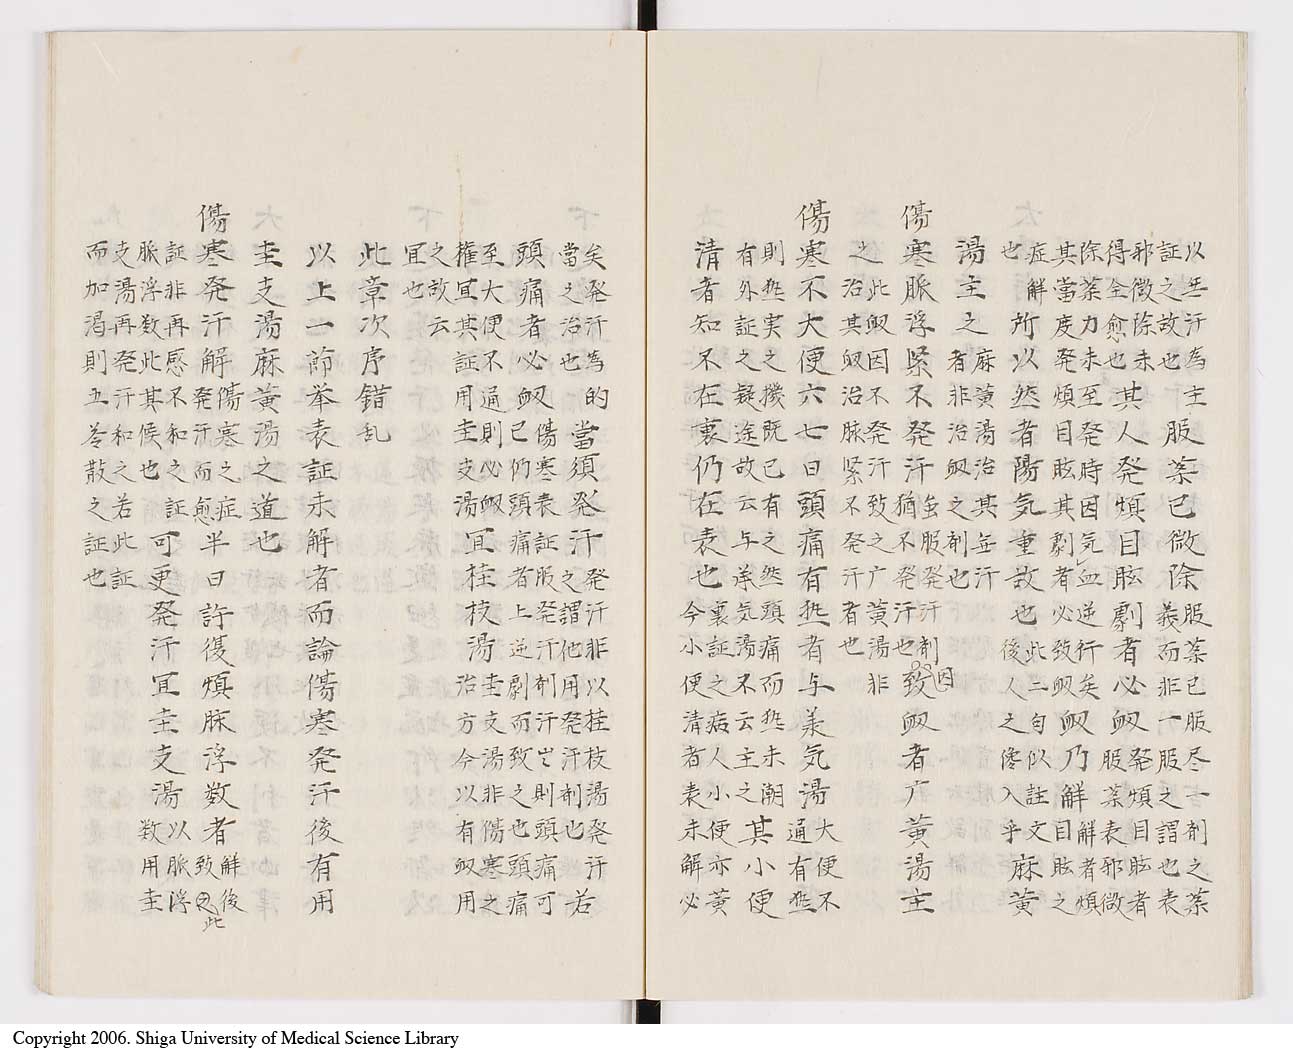 以無汗為主服薬已微除服薬已服尽一剤之薬
証之故也義而非一服之謂也表
邪微除未其人発煩目眩劇者必衂発煩目眩者
得全愈也服薬表邪微
除薬力未至発時因気血逆行矣衂乃解解者煩
其當度発煩目眩其劇者必致衂目眩之
症解所以然者陽気重故也此二句似註文麻黄
也後人之俻入乎
湯主之麻黄湯治其無汗
者非治衂之剤也
傷寒脈浮緊不発汗虽服発汗剤因致衂者广黄湯主
猶不発汗也
之此衂因不発汗致之广黄湯非
治其衂治脉緊不発汗者也
傷寒不大便六七日頭痛有热者与羕気湯大便不
通有热
則热実之機既已有之然頭痛而热未潮其小便
有外証之凝途故云与羕気湯不云主之
清者知不在裏仍在表也今裏証之病人小便亦黄
小便清者表未解必
矣発汗為的當須発汗発汗非以桂枝湯発汗若
當之治也之謂他用発汗剤也
頭痛者必衂傷寒表証服発汗剤汗岂則頭痛可
已仍頭痛者上逆劇而致之也頭痛
至大便不通則必衂宜桂枝湯圭支湯非傷寒之
権宜其証用圭支湯治方今以有衂用
之故云
宜也
此章次序錯乱
以上一節挙表証未解者而論傷寒発汗後有用
圭支湯麻黄湯之道也
傷寒発汗解傷寒之症半日許復煩脉浮数者解後
発汗而愈致此
証非再感不和之証可更発汗宜圭支湯以脈浮
脈浮数此其候也数用圭
支湯再発汗和之若此証
而加渇則五苓散之証也
Copyright 2006. Shiga University of Medical Science Library